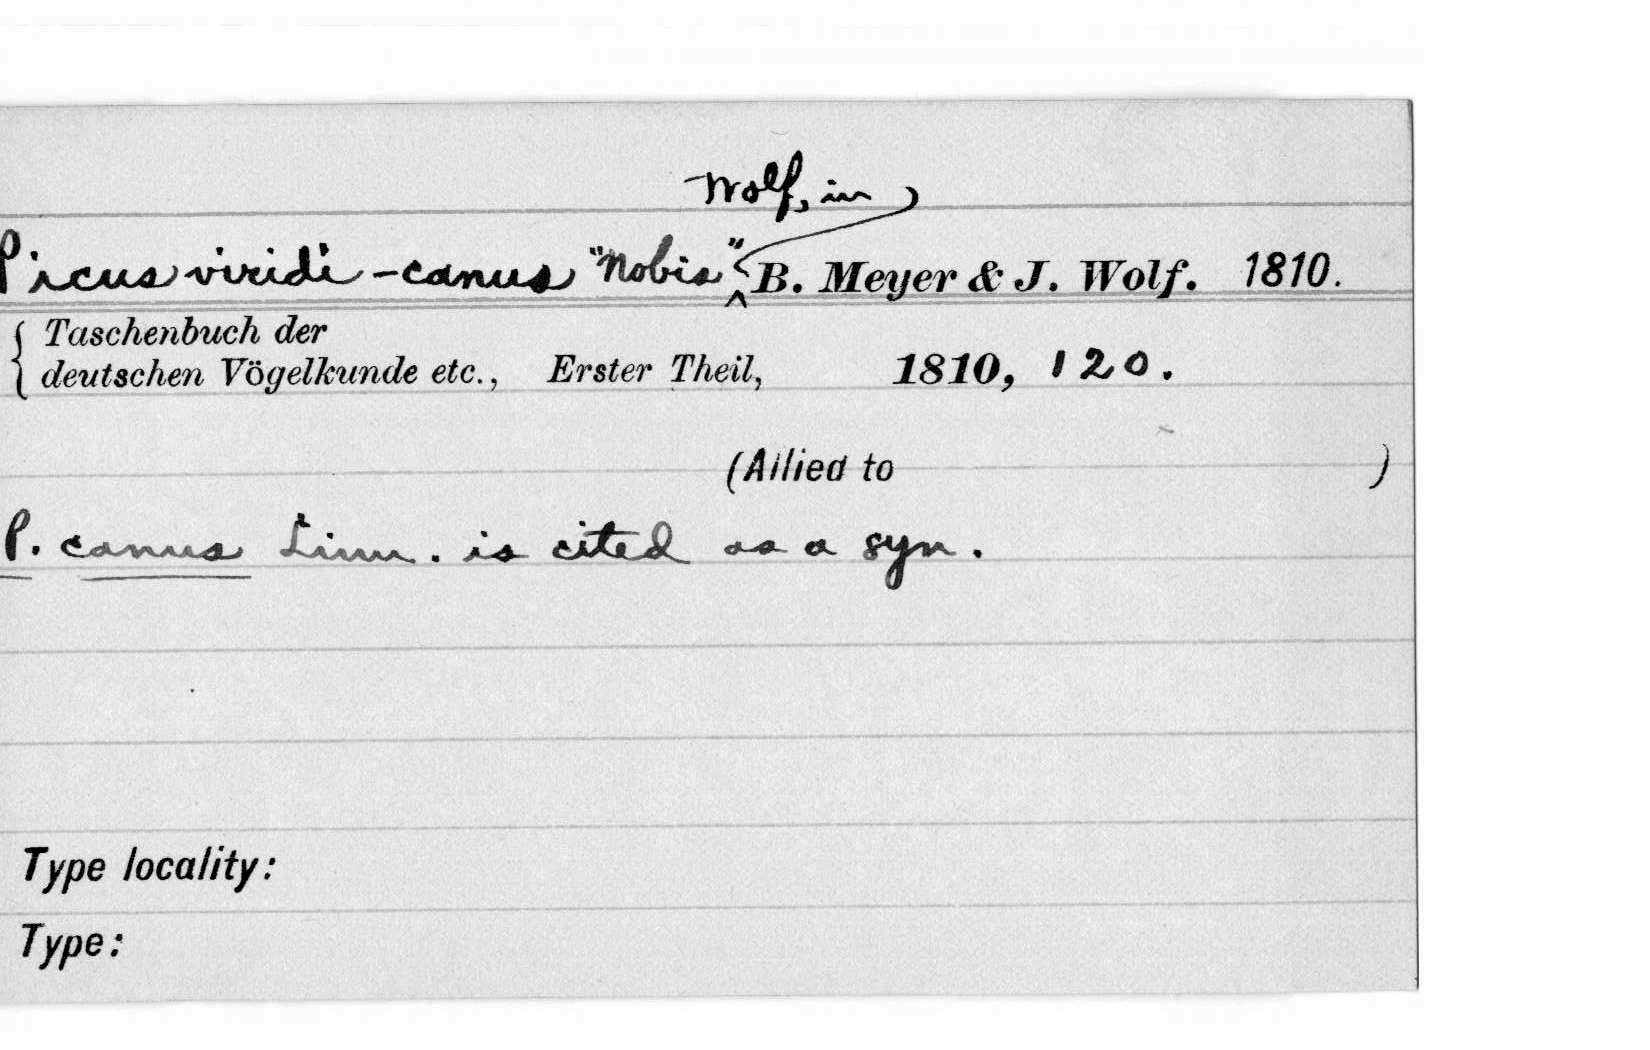 Wolf, in
Picus viridi-canus "Nobis" B. Meyer & J. Wolf. 1810.
Taschenbuch der
deutschen Vögelkunde etc., Erster Theil, 1810, 120.
(Allied to )
P. canus Linn. is cited as a syn.
Type locality:
Type: